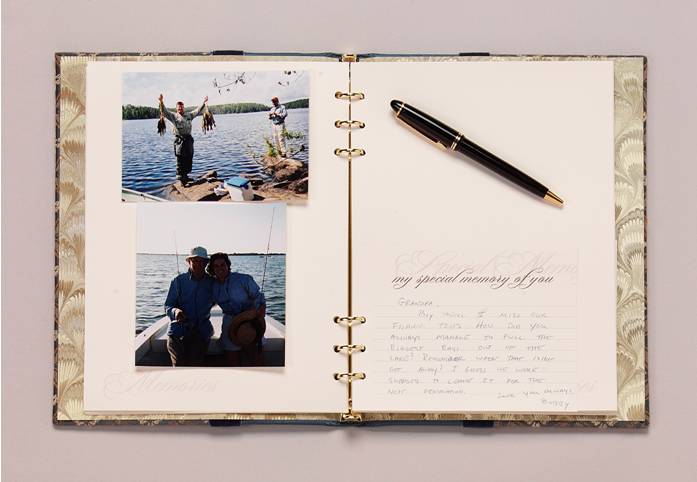 Memories
Special Memories
my special memory of you
GRANDPA,
BOY WILL I MISS OUR
FISHING TRIPS. HOW DID YOU
ALWAYS MANAGE TO PULL THE
BIGGEST BASS OUT OF THE
LAKE? REMEMBER WHEN THAT
GOT AWAY? I GUESS WE WERE
SUPPOSED TO LEAVE IT FOR THE
NEXT GENERATION.
LOVE YOU ALWAYS!
BOBBY